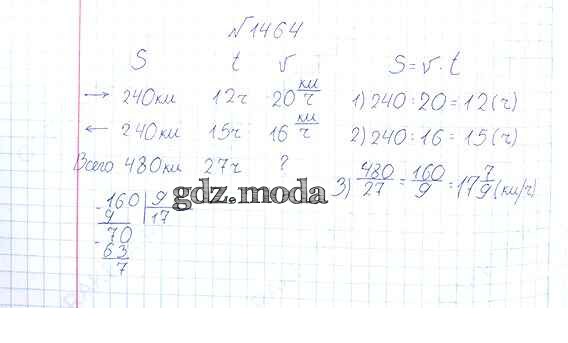 №1464
S t v
→ 240км 12ч 20 км/ч
← 240км 15ч 16 км/ч
Всего 480км 27ч ?
S = v · t
1) 240 : 20 = 12 (ч)
2) 240 : 16 = 15 (ч)
3) 480/27 = 160/9 = 17 7/9 (км/ч)
gdz.moda
- 160 | 9
9 | 17
- 70
63
7